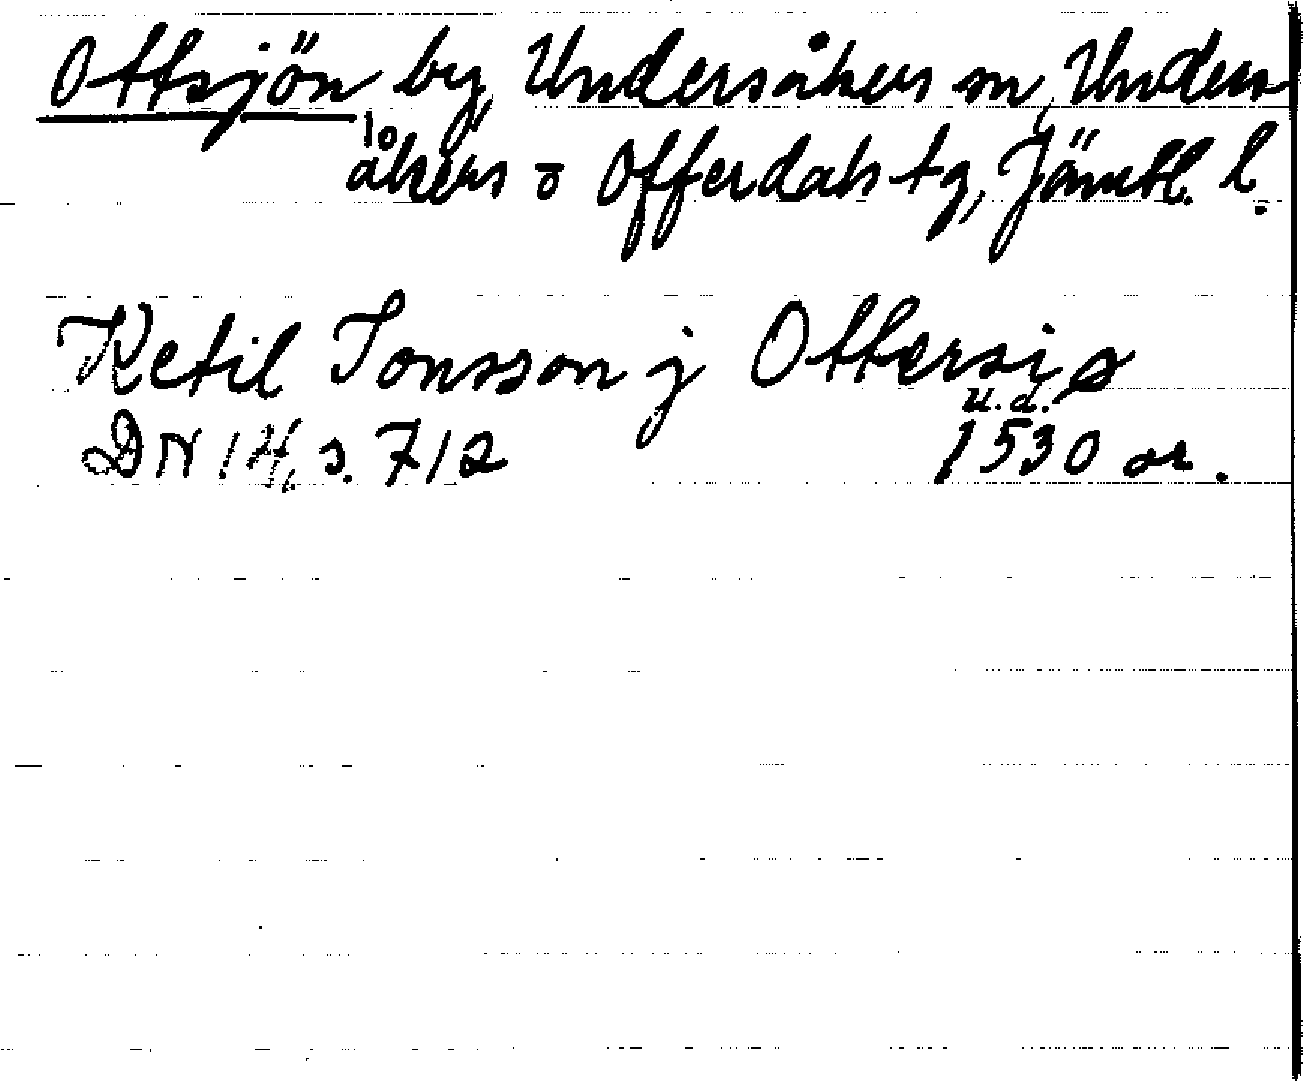 Ottsjön by, Undersåkers sn, Under-
såkers o Offerdals tg, Jämtl. l.
Ketil Jonsson j Ottersiø
u.d.
DN 14, s. 712 1530 or.